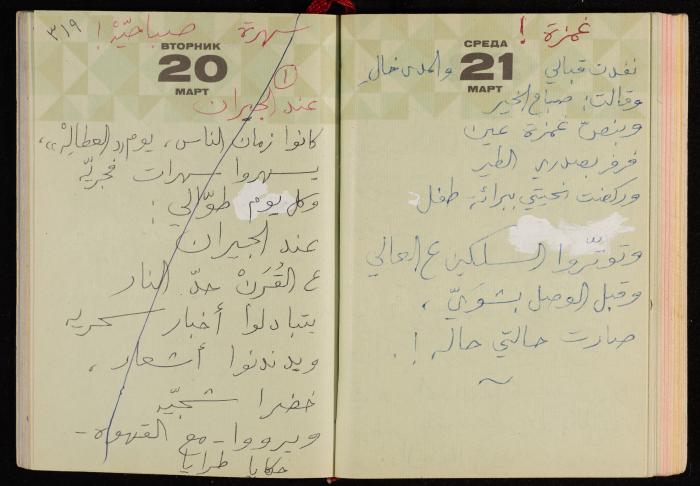 ٣١٩
سهرة صباحيّة !
ВТОРНИК
20
МАРТ
١
عند الجيران
كانوا زمان الناس، يوم «العطالِهْ»،
يسهروا سهرات فجريّه
وكل يوم طوّالي :
عند الجيران
ع القُرَنْ حدّ النار
يتبادلوا أخبار سحريه
ويدندنوا أشعار ،
خضرا شجيّه
ويرووا - مع القهوه -
حكايا طرايا
غمزة !
СРЕДА
21
МАРТ
نفدت قبالي والمدى خالي
وقالت: صباح الخير
وبنصّ غمزة عين
فرفر بصدري الطير
وركضت نحيتي ببرائة طفل
وتوتّروا السلكين ع العالي
وقبل الوصل بشويّ ،
صارت حالتي حاله !.